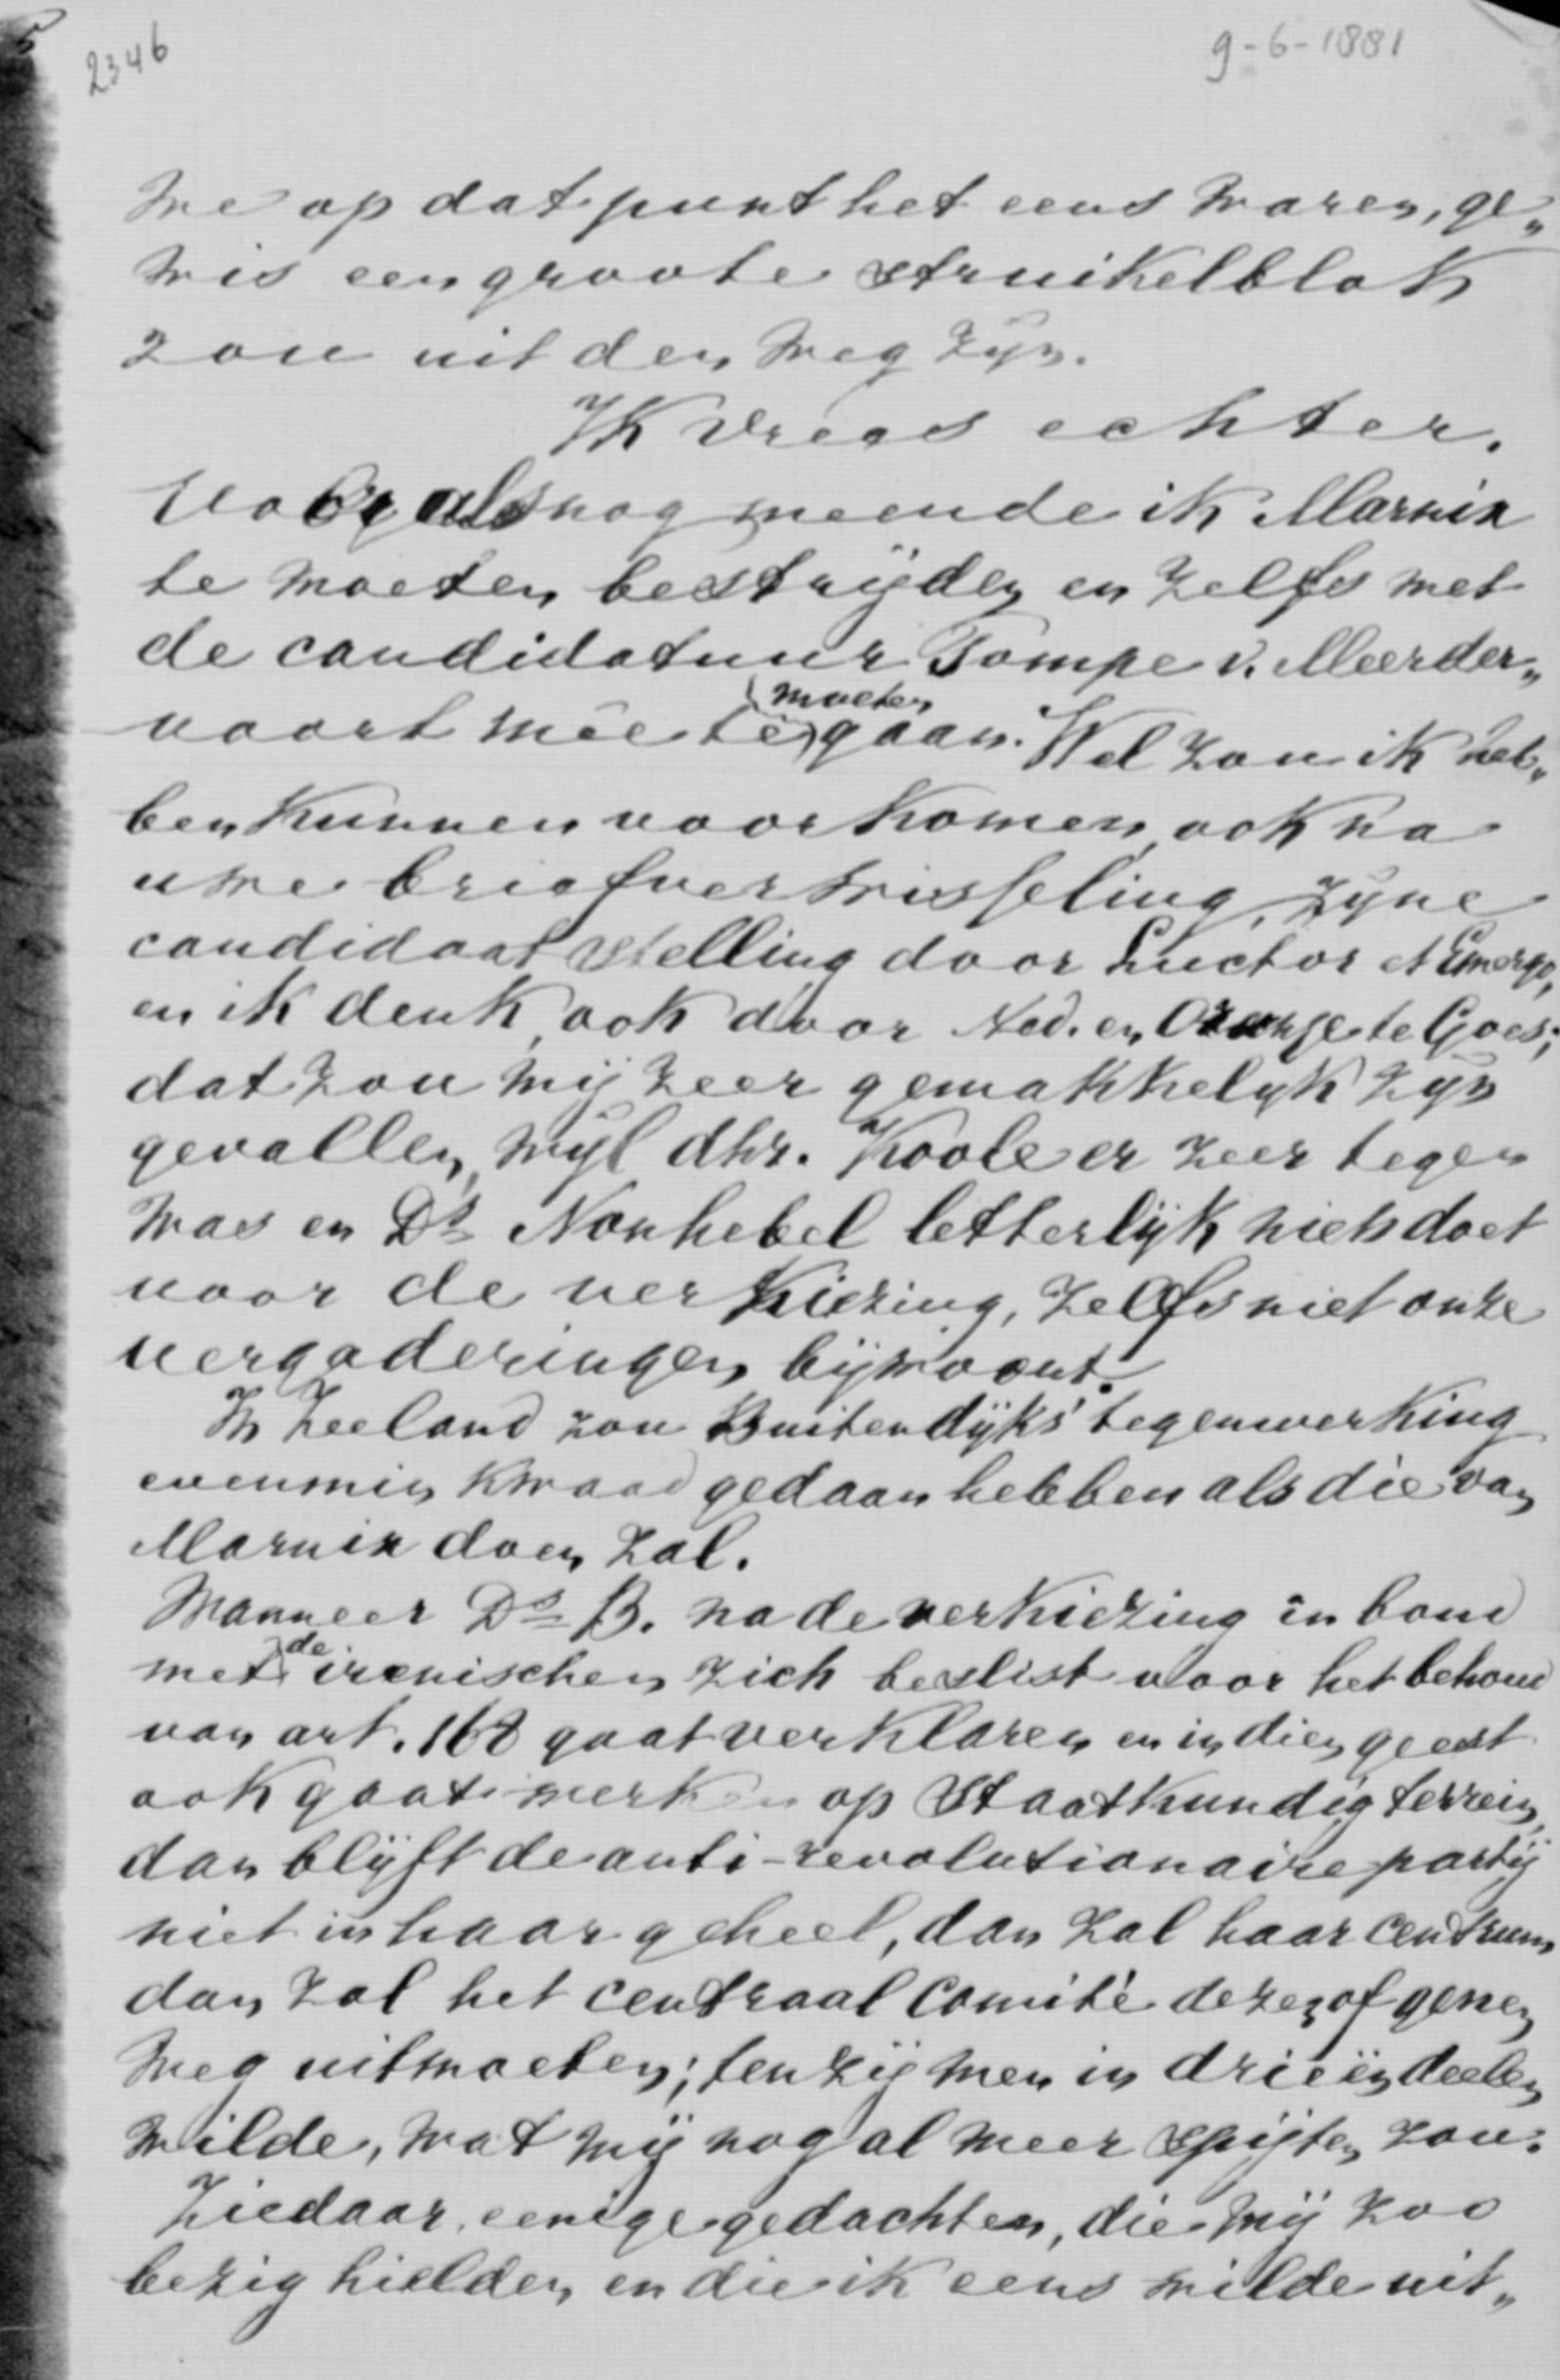 2346
9-6-1881
we op dat punt het eens waren, ge„
wis een groote struikelblok
zou uit den weg zyn.
Ik vrees echter.
Vooralsnog meende ik Marnix
te moeten bestrijden en zelfs met
de candidatuur Pompe v. Meerder„
voort meê te moeten gaan. Wel zou ik heb„
ben kunnen voorkomen, ook na
uwe briefverwisseling, zyne
candidaatstelling door Luctor et Emergo,
en ik denk, ook door Ned. en Oranje te Goes;
dat zou mij zeer gemakkelyk zyn
gevallen, wyl dhr. Koole er zeer tegen
was en Ds Nonhebel letterlijk niets doet
voor de verkiezing, zelfs niet onze
vergaderingen bijwoont.
In Zeeland zou Buitendijks' tegenwerking
evenmin kwaad gedaan hebben als die van
Marnix doen zal.
Wanneer Ds B. na de verkiezing in bond
met de irenischen zich beslist voor het behoud
van art. 168 gaat verklaren en in dien geest
ook gaat werken op staatkundig terrein,
dan blijft de anti-revolutionaire partij
niet in haar geheel, dan zal haar centrum,
dan zal het centraal comité dezen of genen
weg uitmoeten; tenzij men in drieën deelen
wilde, wat mij nog al meer spijten zou.
Ziedaar eenige gedachten, die mij zoo
bezig hielden en die ik eens wilde uit„